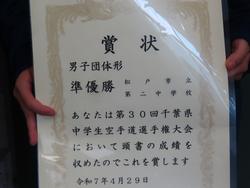 賞状
男子団体形
準優勝 松戸市立
第二中学校
あなたは第30回千葉県
中学生空手道選手権大会
において頭書の成績を
収めたのでこれを賞します
令和7年4月29日